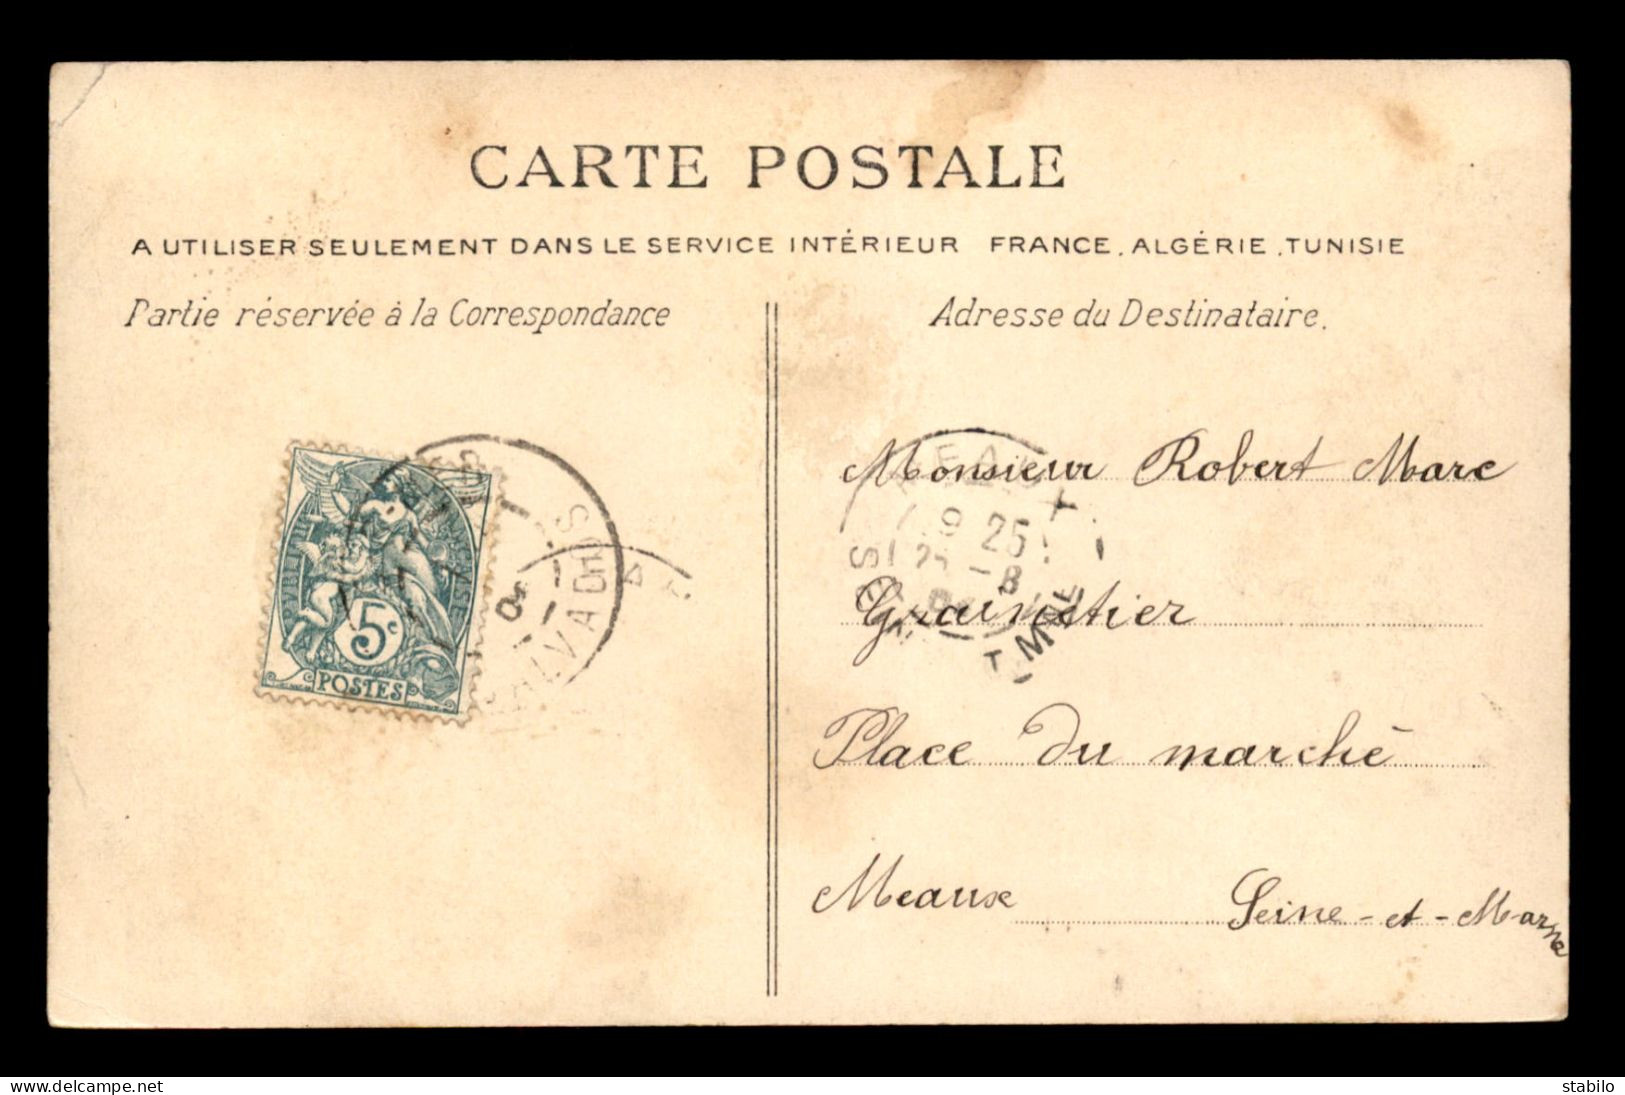 CARTE POSTALE
A UTILISER SEULEMENT DANS LE SERVICE INTÉRIEUR FRANCE, ALGÉRIE, TUNISIE
Partie réservée à la Correspondance
Adresse du Destinataire.
5c
POSTES
CALVADOS
MEAUX
25
Monsieur Robert Marc
Grainetier
Place du marché
Meaux Seine-et-Marne
www.delcampe.net
stabilo